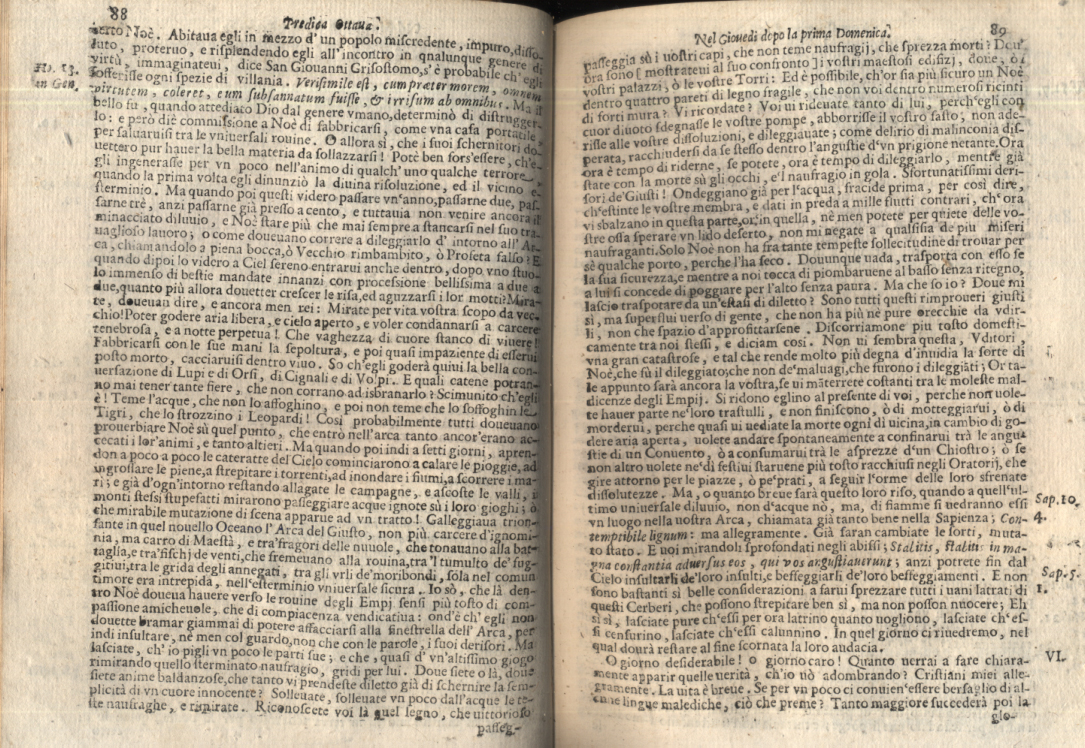 88
Predica Ottaua.
serto Noè. Abitaua egli in mezzo d'un popolo miscredente, impuro, disso-
luto, proteruo, e risplendendo egli all'incontro in qnalunque genere di
virtù, immaginateui, dice San Giouanni Grisostomo, s'è probabile ch'egli
Ho. 23.
in Gen.
sofferisse ogni spezie di villania. Verisimile est, cum præter morem, omnem
virtutem, coleret, eum subsannatum fuisse, & irrisum ab omnibus. Ma il
bello fu, quando attediato Dio dal genere vmano, determinò di distrugger-
lo: e però diè commissione a Noè di fabbricarsi, come vna casa portatile,
per saluaruisi tra le vniuersali rouine. O allora sì, che i suoi schernitori do-
uettero pur hauer la bella materia da sollazzarsi! Potè ben fors'essere, ch'e-
gli ingenerasse per vn poco nell'animo di qualch'uno qualche terrore,
quando la prima volta egli dinunziò la diuina risoluzione, ed il vicino e-
sterminio. Ma quando poi questi videro passare vn'anno, passarne due, pas-
sarne trè, anzi passarne già presso a cento, e tuttauia non venire ancora il
minacciato diluuio, e Noè stare più che mai sempre a stancarsi nel suo tra-
uaglioso lauoro; o come doueuano correre a dileggiarlo d'intorno all'Ar-
ca, chiamandolo a piena bocca, ò Vecchio rimbambito, ò Profeta falso? E
quando dipoi lo videro a Ciel sereno entrarui anche dentro, dopo vno stuo-
lo immenso di bestie mandate innanzi con processione bellissima a due a
due, quanto più allora douetter crescer le risa, ed aguzzarsi i lor motti? Mira-
te, doueuan dire, e ancora men rei: Mirate per vita vostra scopo da vec-
chio! Poter godere aria libera, e cielo aperto, e voler condannarsi a carcere
tenebrosa, e a notte perpetua! Che vaghezza di cuore stanco di viuere!
Fabbricarsi con le sue mani la sepoltura, e poi quasi impaziente di esserui
posto morto, cacciaruisi dentro viuo. So ch'egli goderà quiui la bella con-
uersazione di Lupi e di Orsi, di Cignali e di Volpi. E quali catene potran-
no mai tener tante fiere, che non corrano ad isbranarlo? Scimunito ch'egli
è! Teme l'acque, che non lo affoghino, e poi non teme che lo soffoghin le
Tigri, che lo strozzino i Leopardi! Così probabilmente tutti doueuano
prouerbiare Noè sù quel punto, che entrò nell'arca tanto ancor'erano ac-
cecati i lor'animi, e tanto altieri. Ma quando poi indi a setti giorni, apren-
don a poco a poco le cateratte del Cielo cominciarono a calare le pioggie, ad
ingrossare le piene, a strepitare i torrenti, ad inondare i fiumi, a scorrere i ma-
ri; e già d'ogn'intorno restando allagate le campagne, e ascoste le valli, i
monti stessi stupefatti mirarono passeggiare acque ignote sù i loro gioghi; ò
che mirabile mutazione di scena apparue ad vn tratto! Galleggiaua trion-
fante in quel nouello Oceano l'Arca del Giusto, non più carcere d'ignomi-
nia, ma carro di Maestà, e tra'fragori delle nuuole, che tonauano alla bat-
taglia, e tra'fischj de venti, che fremeuano alla rouina, tra'l tumulto de' fug-
gitiui, tra le grida degli annegati, tra gli vrli de'moribondi, sola nel comun
timore era intrepida, nell'esterminio vniuersale sicura. Io sò, che là den-
tro Noè doueua hauere verso le rouine degli Empj sensi più tosto di com-
passione amicheuole, che di compiacenza vendicatiua: ond'è ch'egli non
douette bramar giammai di potere affacciarsi alla finestrella dell'Arca, per
indi insultare, nè men col guardo, non che con le parole, i suoi derisori. Ma
lasciate, ch'io pigli vn poco le parti sue; e che, quasi d'vn'altissimo giogo
rimirando quello sterminato naufragio, gridi per lui. Doue siete o là, doue
siete anime baldanzose, che tanto vi prendeste diletto già di schernire la sem-
plicità di vn cuore innocente? Solleuate, solleuate vn poco dall'acque le te-
ste naufraghe, e rispirate. Riconoscete voi là quel legno, che uittorioso
passeg-
Nel Giouedì dopo la prima Domenica.
89
passeggia sù i uostri capi, che non teme naufragij, che sprezza morti? Dou'
ora sono [mostrateui al suo confronto] i vostri maestosi edifizj, doue, ò i
vostri palazzi, ò le vostre Torri: Ed è possibile, ch'or sia più sicuro un Noè
dentro quattro pareti di legno fragile, che non voi dentro numerosi ricinti
di forti mura? Vi ricordate? Voi ui rideuate tanto di lui, perch'egli con
cuor diuoto sdegnasse le vostre pompe, abborrisse il vostro fasto; non ade-
risse alle vostre dissoluzioni, e dileggiauate; come delirio di malinconia dis-
perata, racchiudersi da se stesso dentro l'angustie d'vn prigione netante. Ora
ora è tempo di riderne, se potete, ora è tempo di dileggiarlo, mentre già
state con la morte sù gli occhi, e'l naufragio in gola. Sfortunatissimi deri-
sori de'Giusti! Ondeggiano già per l'acqua, fracide prima, per così dire,
ch'estinte le vostre membra, e dati in preda a mille flutti contrari, ch'ora
vi sbalzano in questa parte, or'in quella, nè men potete per quiete delle vo-
stre ossa sperare vn lido deserto, non mi negate a qualsisia de' più miseri
naufraganti. Solo Noè non ha fra tante tempeste sollecitudine di trouar per
sè qualche porto, perche l'ha seco. Douunque uada, trasporta con esso se
la sua sicurezza, e mentre a noi tocca di piombaruene al basso senza ritegno,
a lui si concede di poggiare per l'alto senza paura. Ma che so io? Doue mi
lascio trasportare da un'estasi di diletto? Sono tutti questi rimproueri giusti
sì, ma superflui uerso di gente, che non ha più nè pure orecchie da vdir-
li, non che spazio d'approfittarsene. Discorriamone piu tosto domesti-
camente tra noi stessi, e diciam così. Non ui sembra questa, Vditori,
vna gran catastrofe, e tal che rende molto più degna d'inuidia la sorte di
Noè, che sù il dileggiato, che non de'maluagi, che furono i dileggiāti; Or ta-
le appunto sarà ancora la vostra, se ui māterrete costanti tra le moleste mal-
dicenze degli Empij. Si ridono eglino al presente di voi, perche non uole-
te hauer parte ne'loro trastulli, e non finiscono, ò di motteggiarui, ò di
mordervi, perche quasi ui uediate la morte ogni dì uicina, in cambio di go-
dere aria aperta, uolete andare spontaneamente a confinarui trà le angu-
stie di un Conuento, ò a consumarui trà le asprezze d'un Chiostro; ò se
non altro uolete ne'dì festiui staruene più tosto racchiusi negli Oratorij, che
gire attorno per le piazze, ò pe'prati, a seguir l'orme delle loro sfrenate
dissolutezze. Ma, o quanto breue sarà questo loro riso, quando a quell'ul-
timo uniuersale diluuio, non d'acque nò, ma, di fiamme si uedranno essi
Sap. 10.
4.
vn luogo nella uostra Arca, chiamata già tanto bene nella Sapienza; Con-
temptibile lignum: ma allegramente. Già saran cambiate le forti, muta-
to stato. E uoi mirandoli sprofondati negli abissi; Stalitis, stalit: in ma-
gna constantia aduersus eos, qui vos angustiauerunt; anzi potrete fin dal
Sap. 5.
1.
Cielo insultarli de'loro insulti, e beffeggiarli de'loro beffeggiamenti. E non
sono bastanti sì belle considerazioni a farui sprezzare tutti i uani latrati di
questi Cerberi, che possono strepitare ben sì, ma non posson nuocere; Eh
sì sì, lasciate pure ch'essi per ora latrino quanto uogliono, lasciate ch'es-
si censurino, lasciate ch'essi calunnino. In quel giorno ci riuedremo, nel
qual dourà restare al fine scornata la loro audacia.
VI.
O giorno desiderabile! o giorno caro! Quanto uerrai a fare chiara-
mente apparir quelle uerità, ch'io uò adombrando? Cristiani miei alle-
gramente. La uita è breue. Se per vn poco ci conuien'essere bersaglio di al-
cune lingue malediche, ciò che preme? Tanto maggiore succederà poi la
glo-